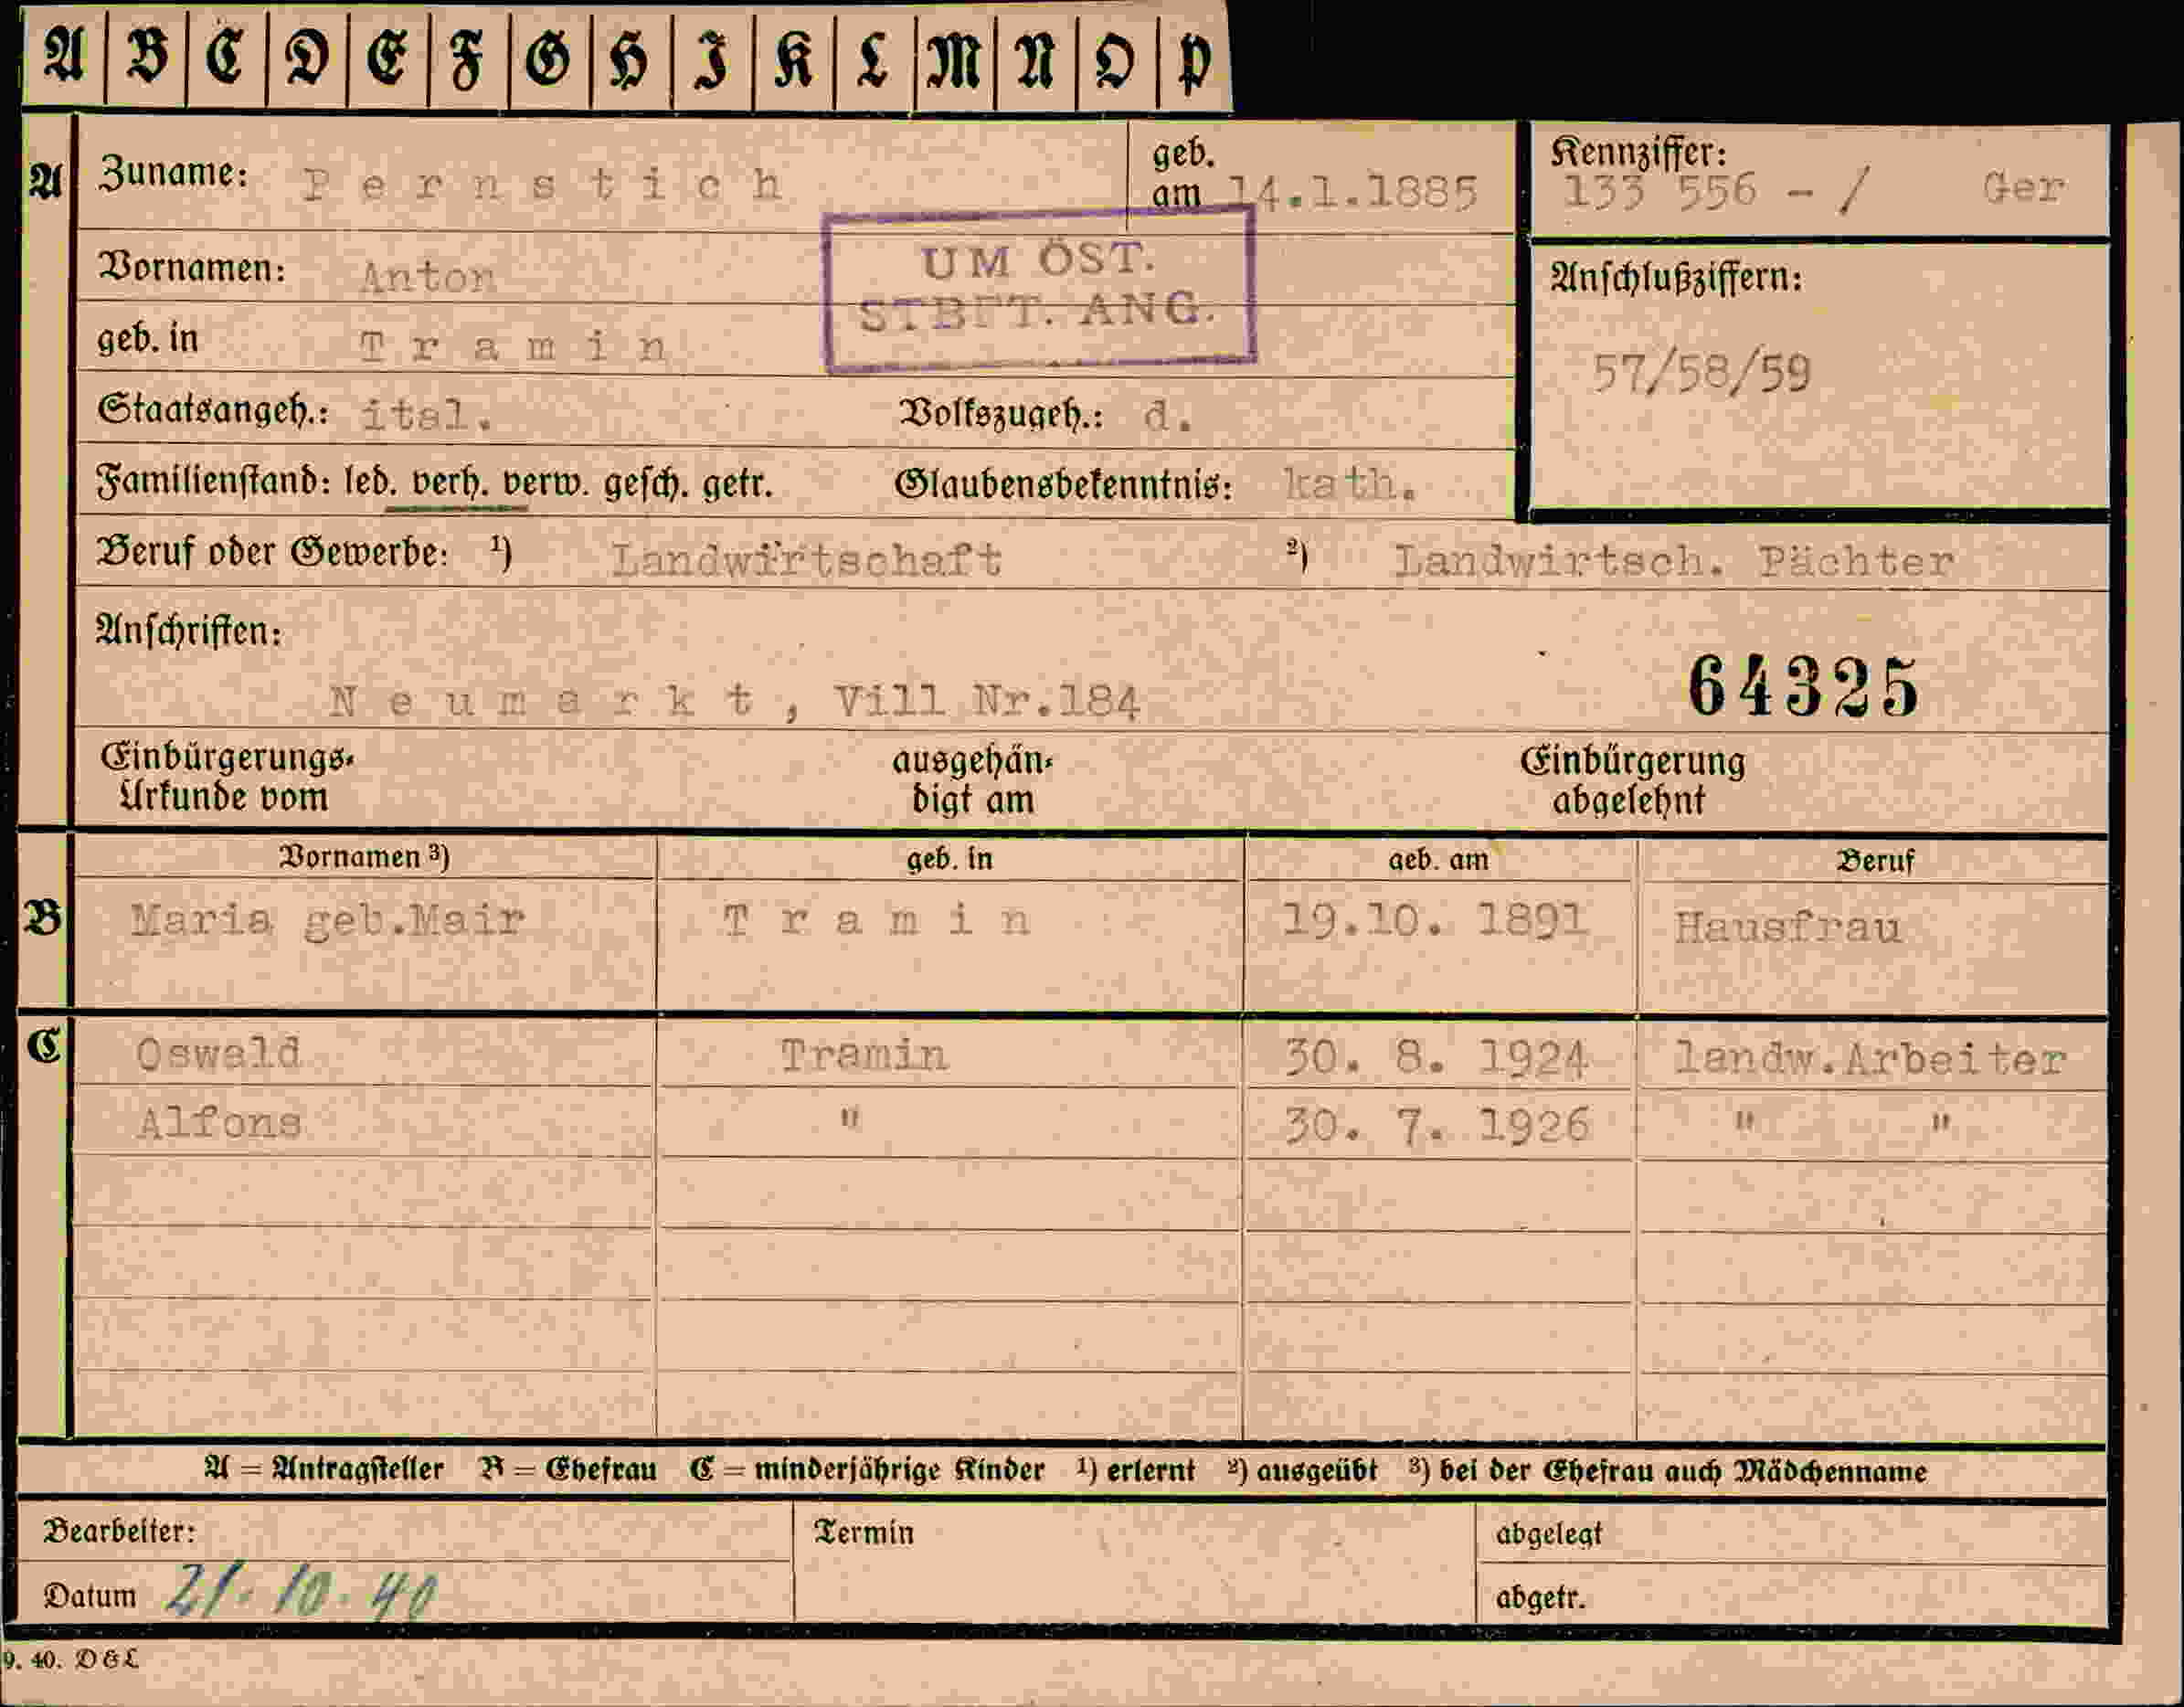 A B C D E F G H I K L M N O P
A Zuname: Pernstich geb. am 14.1.1885 Kennziffer: 133 556 - / Ger
Vornamen: Anton
UM ÖST.
STBFT. ANG.
Anschlußziffern:
geb. in Tramin
57/58/59
Staatsangeh.: ital. Volkszugeh.: d.
Familienstand: led. verh. verw. gesch. getr. Glaubensbekenntnis: kath.
Beruf oder Gewerbe: ¹) Landwirtschaft ²) Landwirtsch. Pächter
Anschriften:
Neumarkt, Vill Nr.184 64325
Einbürgerungs-Urkunde vom ausgehändigt am Einbürgerung abgelehnt
Vornamen ³) geb. in geb. am Beruf
B Maria geb.Mair Tramin 19.10. 1891 Hausfrau
C Oswald Tramin 30. 8. 1924 landw.Arbeiter
Alfons " 30. 7. 1926 " "
A = Antragsteller B = Ehefrau C = minderjährige Kinder ¹) erlernt ²) ausgeübt ³) bei der Ehefrau auch Mädchenname
Bearbeiter: Termin abgelegt
Datum 21.10.40 abgetr.
9. 40. D&L